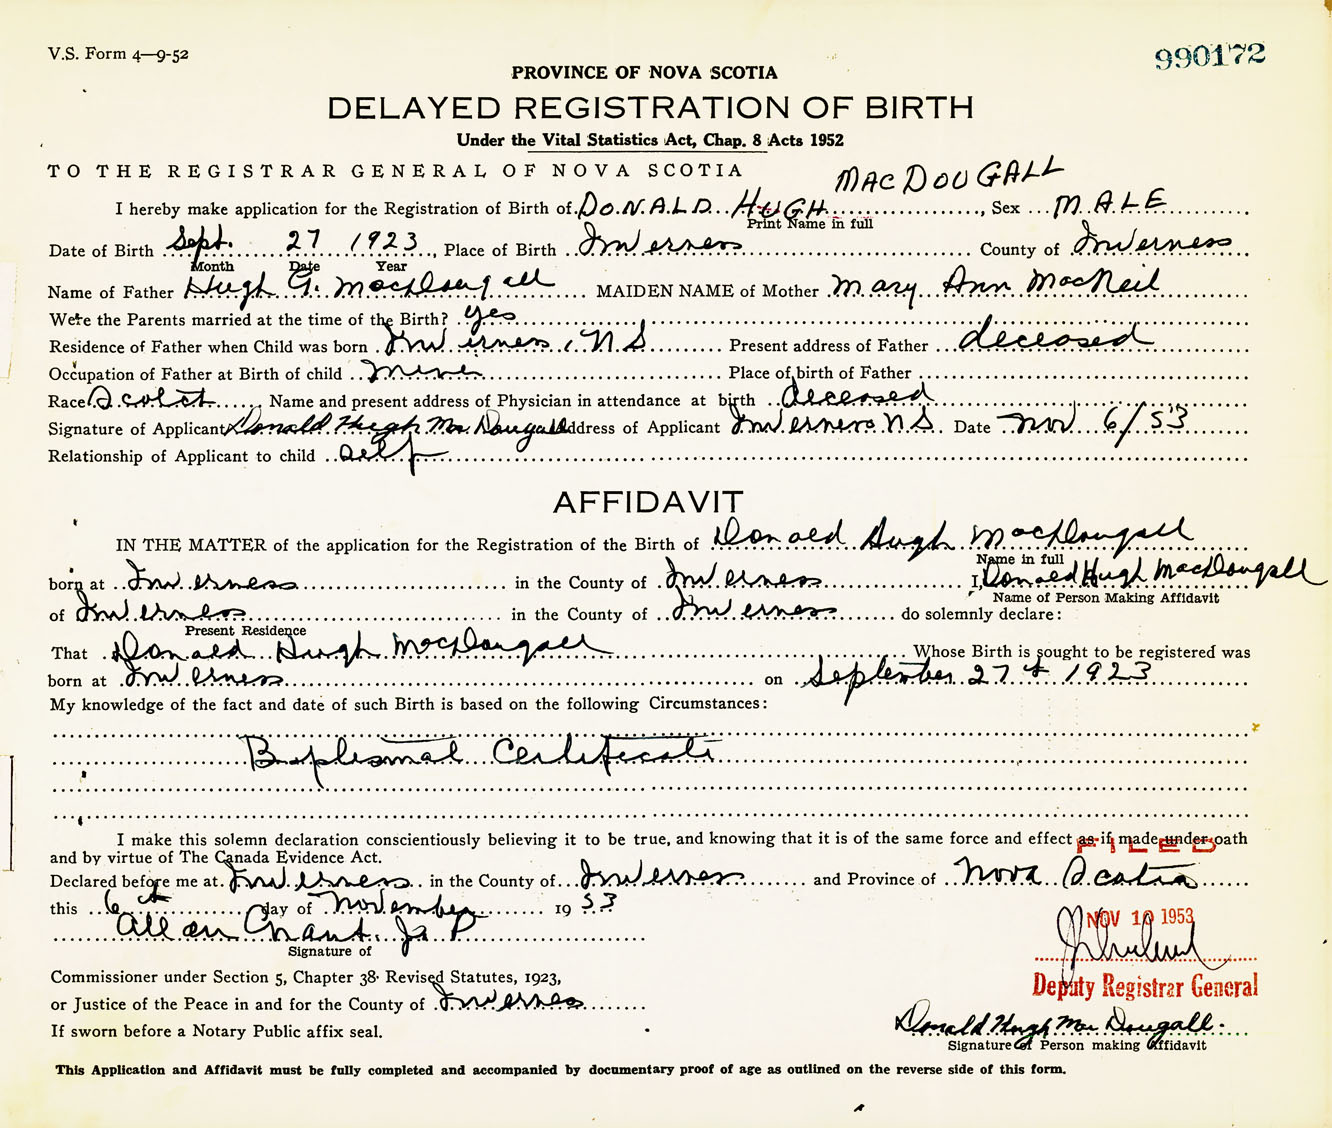 V.S. Form 4—9-52
990172
PROVINCE OF NOVA SCOTIA
DELAYED REGISTRATION OF BIRTH
Under the Vital Statistics Act, Chap. 8 Acts 1952
TO THE REGISTRAR GENERAL OF NOVA SCOTIA
MACDOUGALL
I hereby make application for the Registration of Birth of DONALD HUGH, Sex MALE
Print Name in full
Date of Birth Sept. 27 1923, Place of Birth Inverness County of Inverness
Month Date Year
Name of Father Hugh G. MacDougall MAIDEN NAME of Mother Mary Ann MacNeil
Were the Parents married at the time of the Birth? yes
Residence of Father when Child was born Inverness, N S Present address of Father deceased
Occupation of Father at Birth of child Place of birth of Father
Race Scotch Name and present address of Physician in attendance at birth deceased
Signature of Applicant Donald Hugh Mac Dougall Address of Applicant Inverness N S. Date Nov 6/53
Relationship of Applicant to child self
AFFIDAVIT
IN THE MATTER of the application for the Registration of the Birth of Donald Hugh MacDougall
Name in full
born at Inverness in the County of Inverness I, Donald Hugh MacDougall
Name of Person Making Affidavit
of Inverness in the County of Inverness do solemnly declare:
Present Residence
That Donald Hugh MacDougall Whose Birth is sought to be registered was
born at Inverness on September 27th 1923
My knowledge of the fact and date of such Birth is based on the following Circumstances:
Baptismal Certificate
I make this solemn declaration conscientiously believing it to be true, and knowing that it is of the same force and effect as if made under oath
FILED
and by virtue of The Canada Evidence Act.
Declared before me at Inverness in the County of Inverness and Province of Nova Scotia
this 6th day of November 1953
NOV 10 1953
Allan Grant J P
Signature of
Commissioner under Section 5, Chapter 38 Revised Statutes, 1923,
Deputy Registrar General
or Justice of the Peace in and for the County of Inverness
Donald Hugh Mac Dougall.
If sworn before a Notary Public affix seal.
Signature of Person making Affidavit
This Application and Affidavit must be fully completed and accompanied by documentary proof of age as outlined on the reverse side of this form.